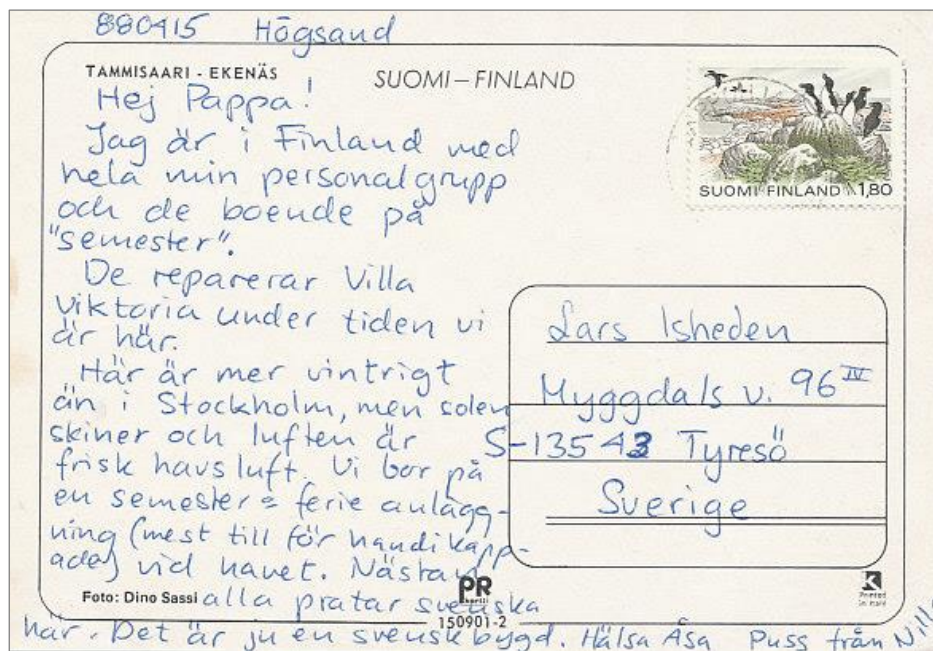 880415 Högsand
TAMMISAARI - EKENÄS
SUOMI – FINLAND
Hej Pappa!
Jag är i Finland med
hela min personalgrupp
och de boende på
"semester".
De reparerar Villa
Viktoria under tiden vi
är här.
Här är mer vintrigt
än i Stockholm, men solen
skiner och luften är
frisk havsluft. Vi bor på
en semester = ferie anlägg-
ning (mest till för handikapp-
ade) vid havet. Nästan
alla pratar svenska
här. Det är ju en svenskbygd. Hälsa Åsa Puss från
SUOMI FINLAND 1,80
Lars Isheden
Myggdals v. 96 IV
S-13543 Tyresö
Sverige
Foto: Dino Sassi
PR
150901-2
Printed
in Italy